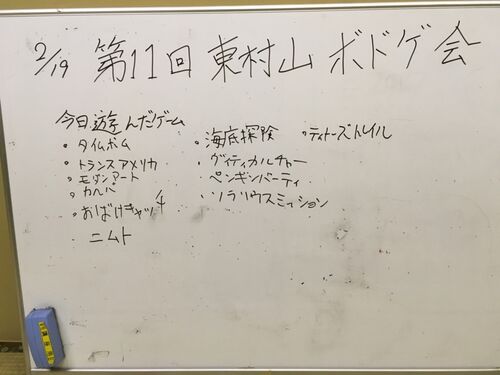 2/19 第11回 東村山 ボドゲ会
今日遊んだゲーム
・タイムボム
・トランスアメリカ
・モダンアート
・カルバ
・おばけキャッチ
ニムト
・海底探険
・ヴィティカルチャー
・ペンギンパーティ
・ソラリウスミッション
・ティトーズトレイル